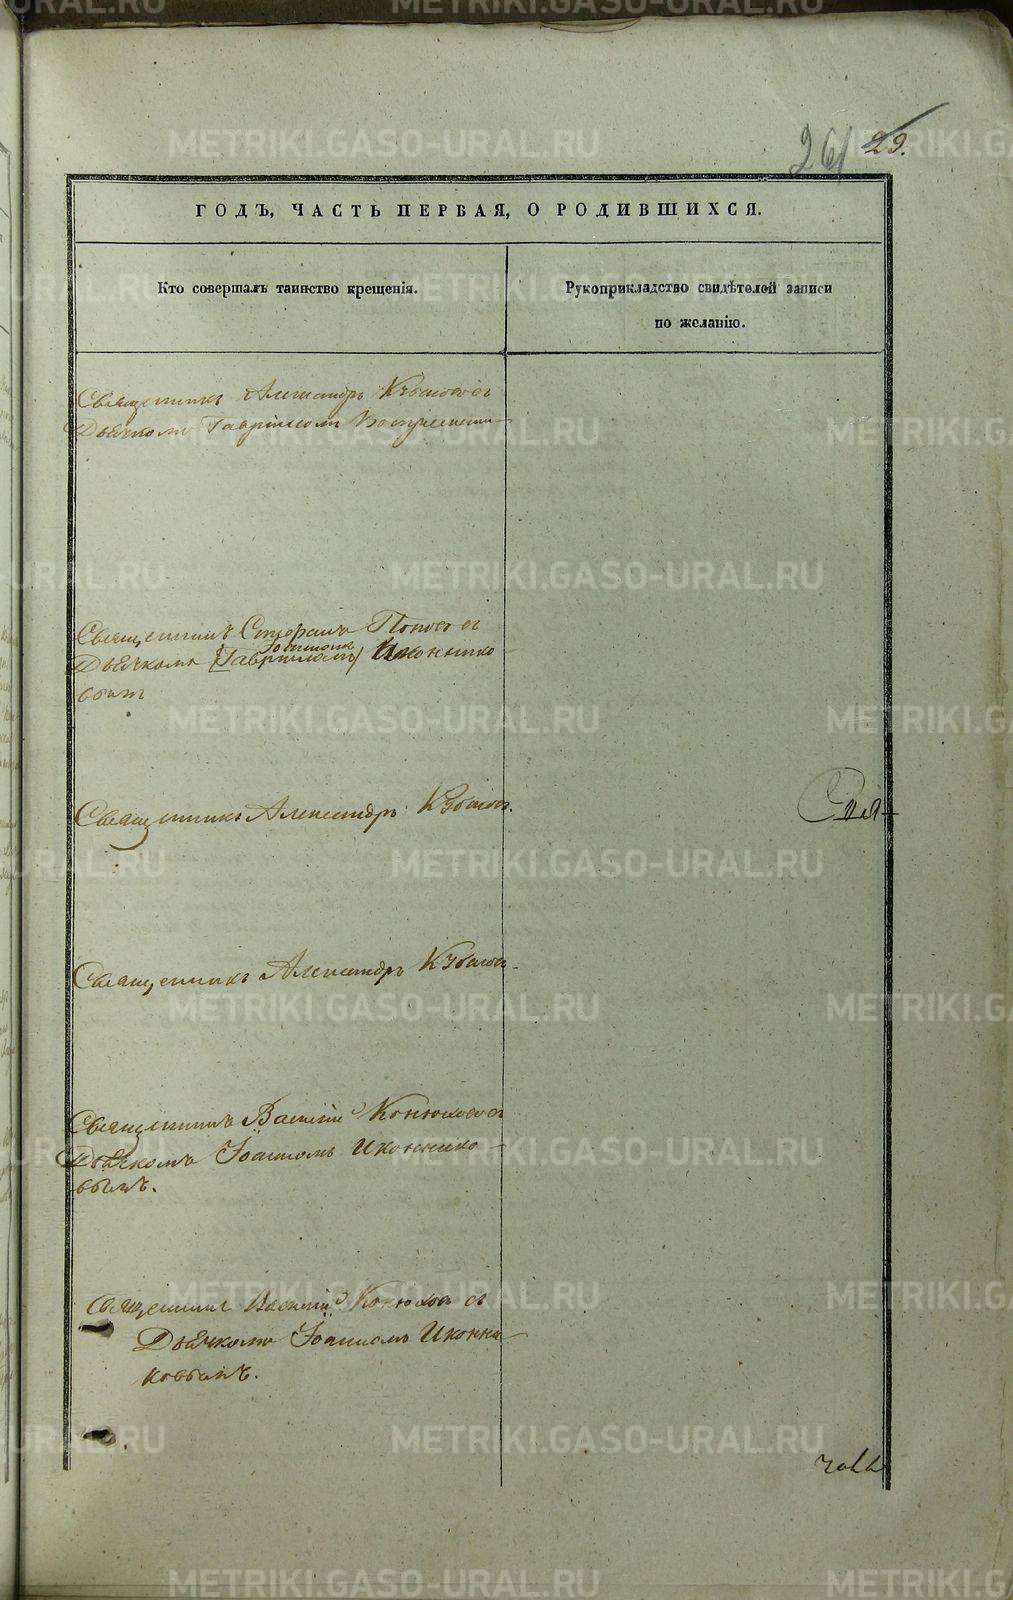 METRIKI.GASO-URAL.RU
26 29.
ГОДЪ, ЧАСТЬ ПЕРВАЯ, О РОДИВШИХСЯ.
Кто совершалъ таинство крещенія.
Рукоприкладство свидѣтелей записи
по желанію.
Священникъ Александръ съ
Дьячкомъ Гавріиломъ
Священникъ Попов съ
Дьячкомъ (Гавриломъ) Іоанномъ Иконнико
вымъ
Священникъ Александръ
Священникъ Александръ
Священникъ Василій Конюхов съ
Дьячкомъ Іоанномъ Иконнико
вымъ.
Священникъ Василій Конюхов съ
Дьячкомъ Іоанномъ Иконни
ковымъ.